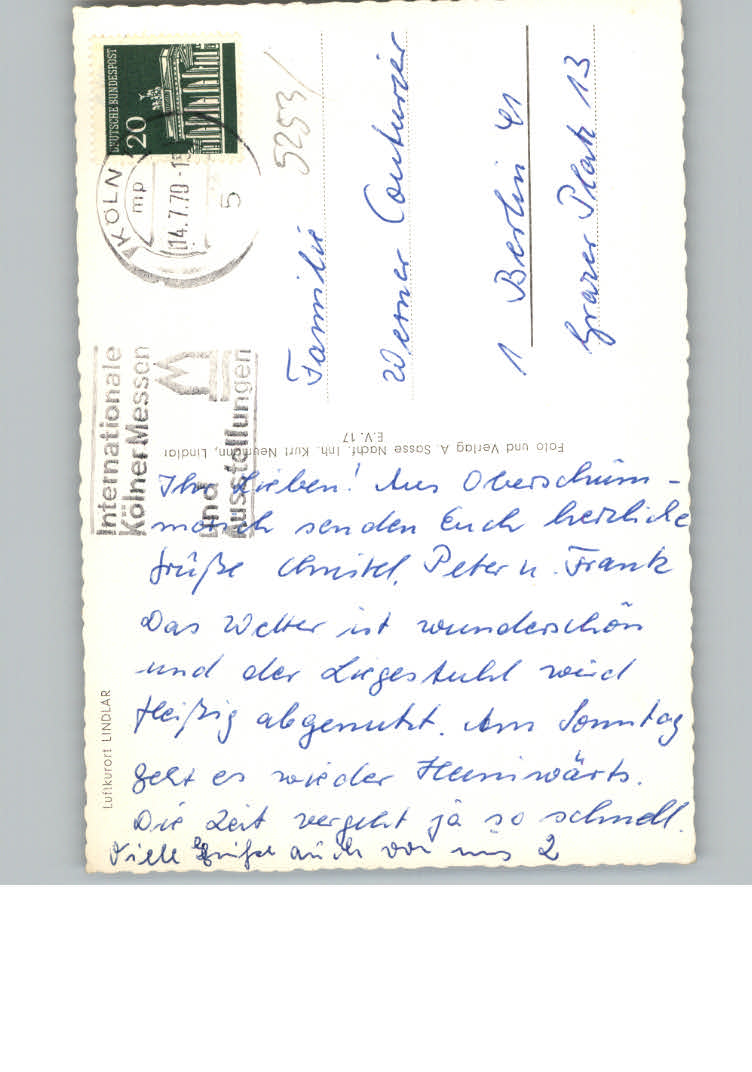 DEUTSCHE BUNDESPOST
20
KÖLN
mp
14.7.70-15
5
5253/
Internationale
Kölner Messen
und
Ausstellungen
Familie
Werner Couturier
1 Berlin 41
Grazer Platz 13
Foto und Verlag A. Sasse Nachf. Inh. Kurt Neumann, Lindlar
E.V. 17
Luftkurort LINDLAR
Ihr Lieben! Aus Oberschüm-
merich senden Euch herzliche
Grüße Christel, Peter u. Frank
Das Wetter ist wunderschön
und der Liegestuhl wird
fleißig abgenutzt. Am Sonntag
geht es wieder Heimwärts.
Die Zeit vergeht ja so schnell.
Viele Grüße auch von uns 2